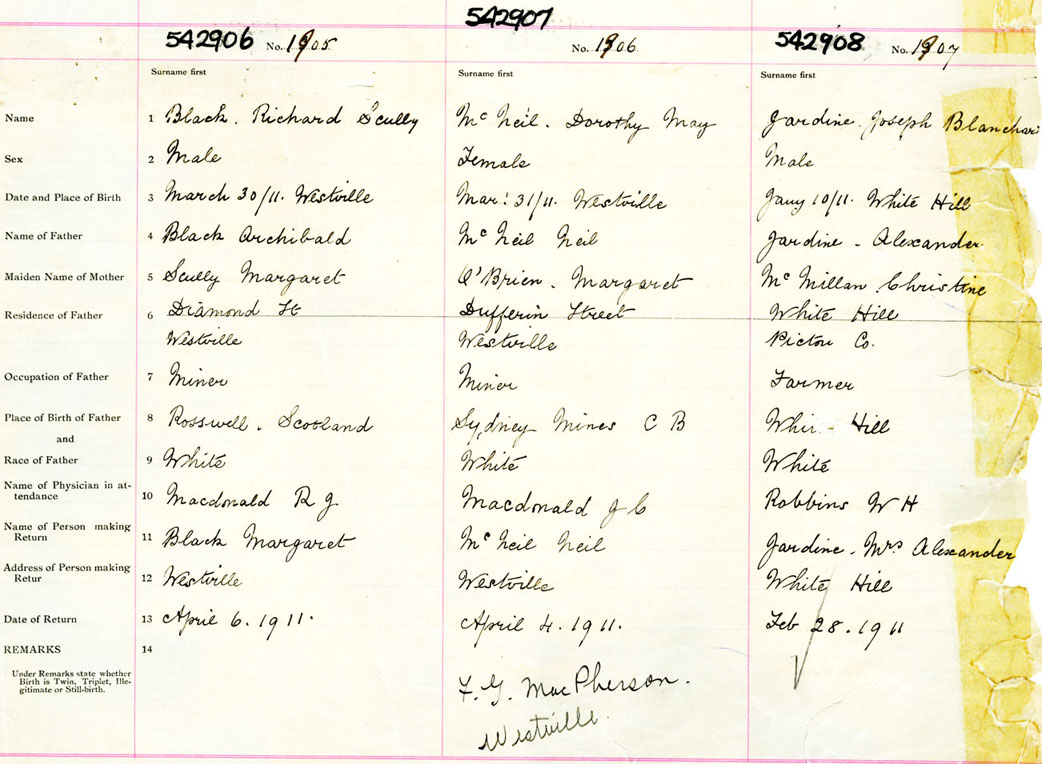 542907
542906 No. 1905 No. 1906 542908 No. 1907
Surname first Surname first Surname first
Name 1 Black. Richard Scully McNeil. Dorothy May Jardine. Joseph Blanchar
Sex 2 Male Female Male
Date and Place of Birth 3 March 30/11. Westville Mar: 31/11. Westville Jany 10/11. White Hill
Name of Father 4 Black Archibald McNeil Neil Jardine - Alexander.
Maiden Name of Mother 5 Scully Margaret O'Brien. Margaret McMillan. Christine
Residence of Father 6 Diamond St Dufferin Street White Hill
Westville Westville Pictou Co.
Occupation of Father 7 Miner Miner Farmer
Place of Birth of Father 8 Rosswell. Scotland Sydney Mines C B Whir - Hill
and
Race of Father 9 White White White
Name of Physician in at-
tendance 10 Macdonald R J Macdonald J C Robbins W H
Name of Person making
Return 11 Black Margaret McNeil Neil Jardine. Mrs Alexander
Address of Person making
Retur 12 Westville Westville White Hill
Date of Return 13 April 6. 1911. April 4. 1911. Feb 28. 1911
REMARKS 14
Under Remarks state whether
Birth is Twin, Triplet, Ille-
gitimate or Still-birth.
F. G. MacPherson.
Westville.